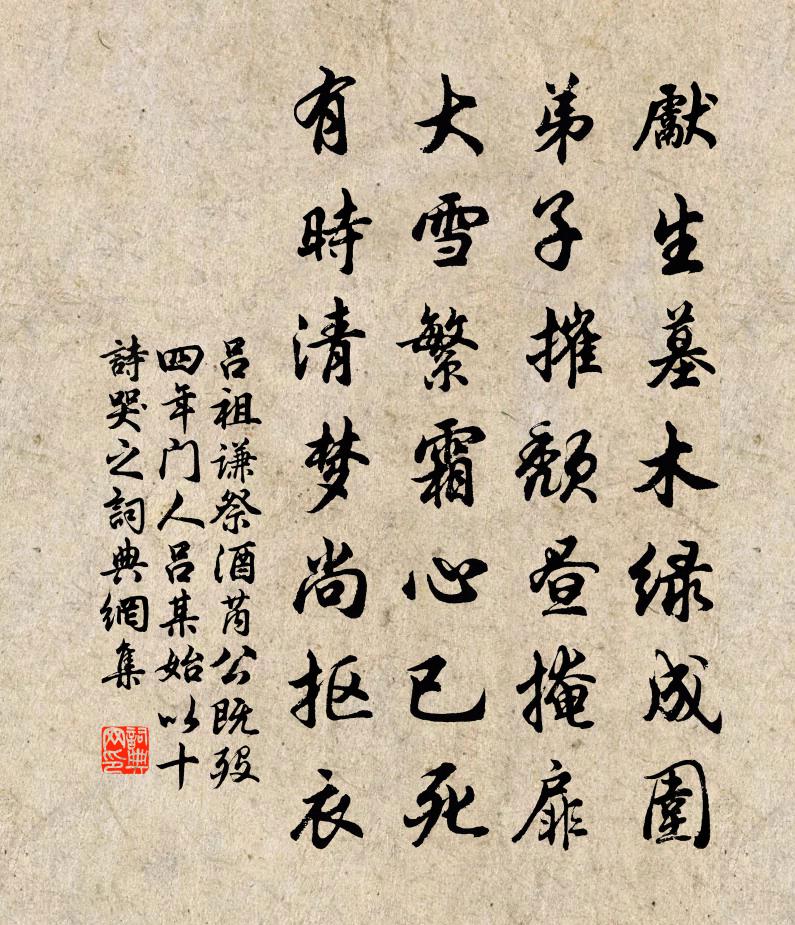 獻生墓木绿成圍
弟子摧颓昼掩扉
大雪繁霜心已死
有時清梦尚抠衣
吕祖谦祭酒芮公既殁
四年门人吕某始以十
詩哭之詞典網集
詞典网印